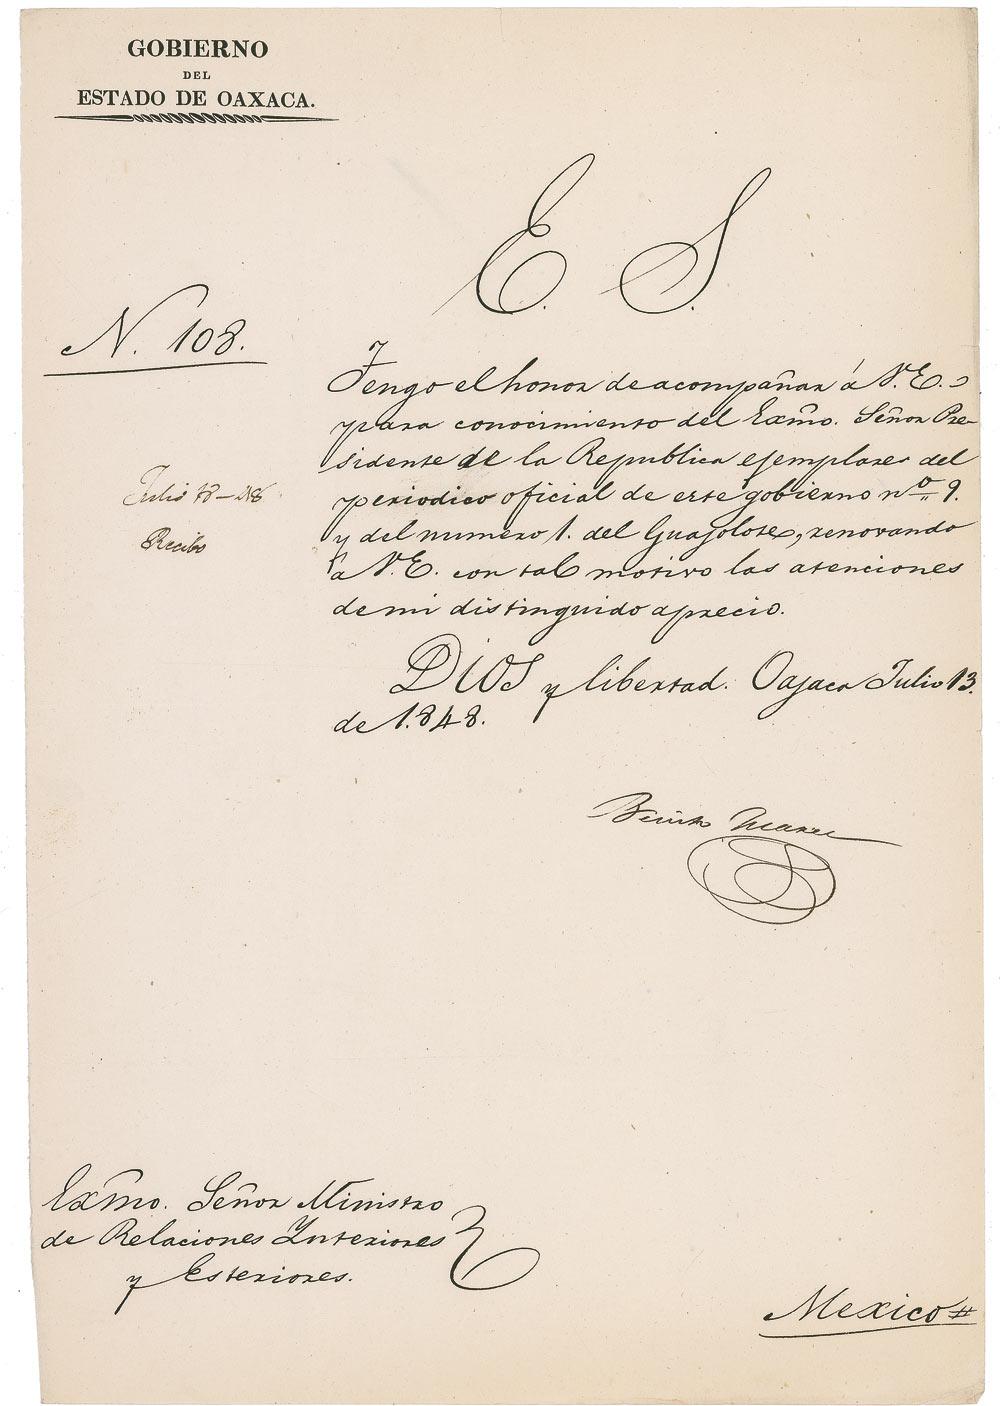 GOBIERNO
DEL
ESTADO DE OAXACA.
E. S.
N. 108.
Tengo el honor de acompañar á V.E.
para conocimiento del Exmo. Señor Pre-
sidente de la Republica ejemplares del
periodico oficial de este gobierno nº 9.
y del numero 1. del Guajolote, renovando
á V.E. con tal motivo las atenciones
de mi distinguido aprecio.
Julio 18-48
Recibo
Dios y libertad. Oajaca Julio 13.
de 1.848.
Benito Juarez
Exmo. Señor Ministro
de Relaciones Interiores
y Esteriores.
Mexico